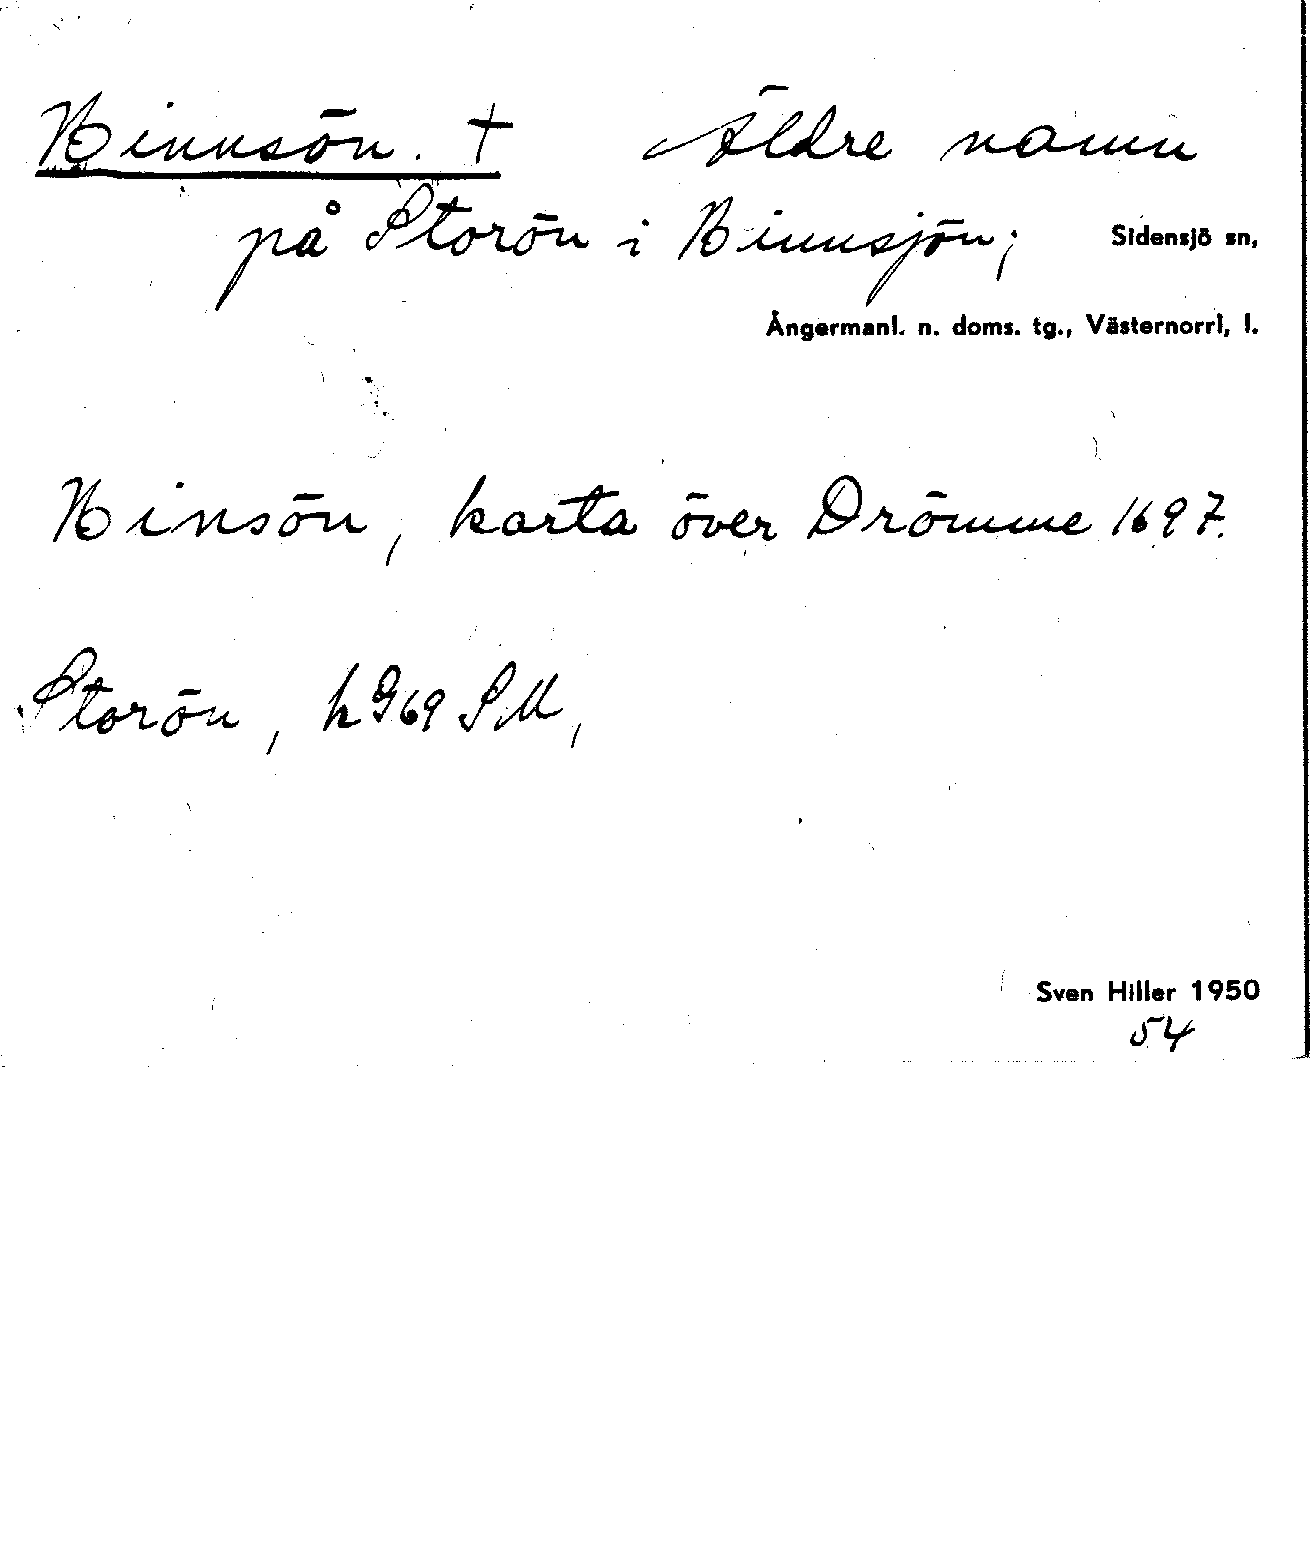 Binnsön. † Äldre namn
på Storön i Binnsjön; Sidensjö sn,
Ångermanl. n. doms. tg., Västernorrl, l.
Binsön, karta över Drömme 1697.
Storön, h 969 SM,
Sven Hiller 1950
54